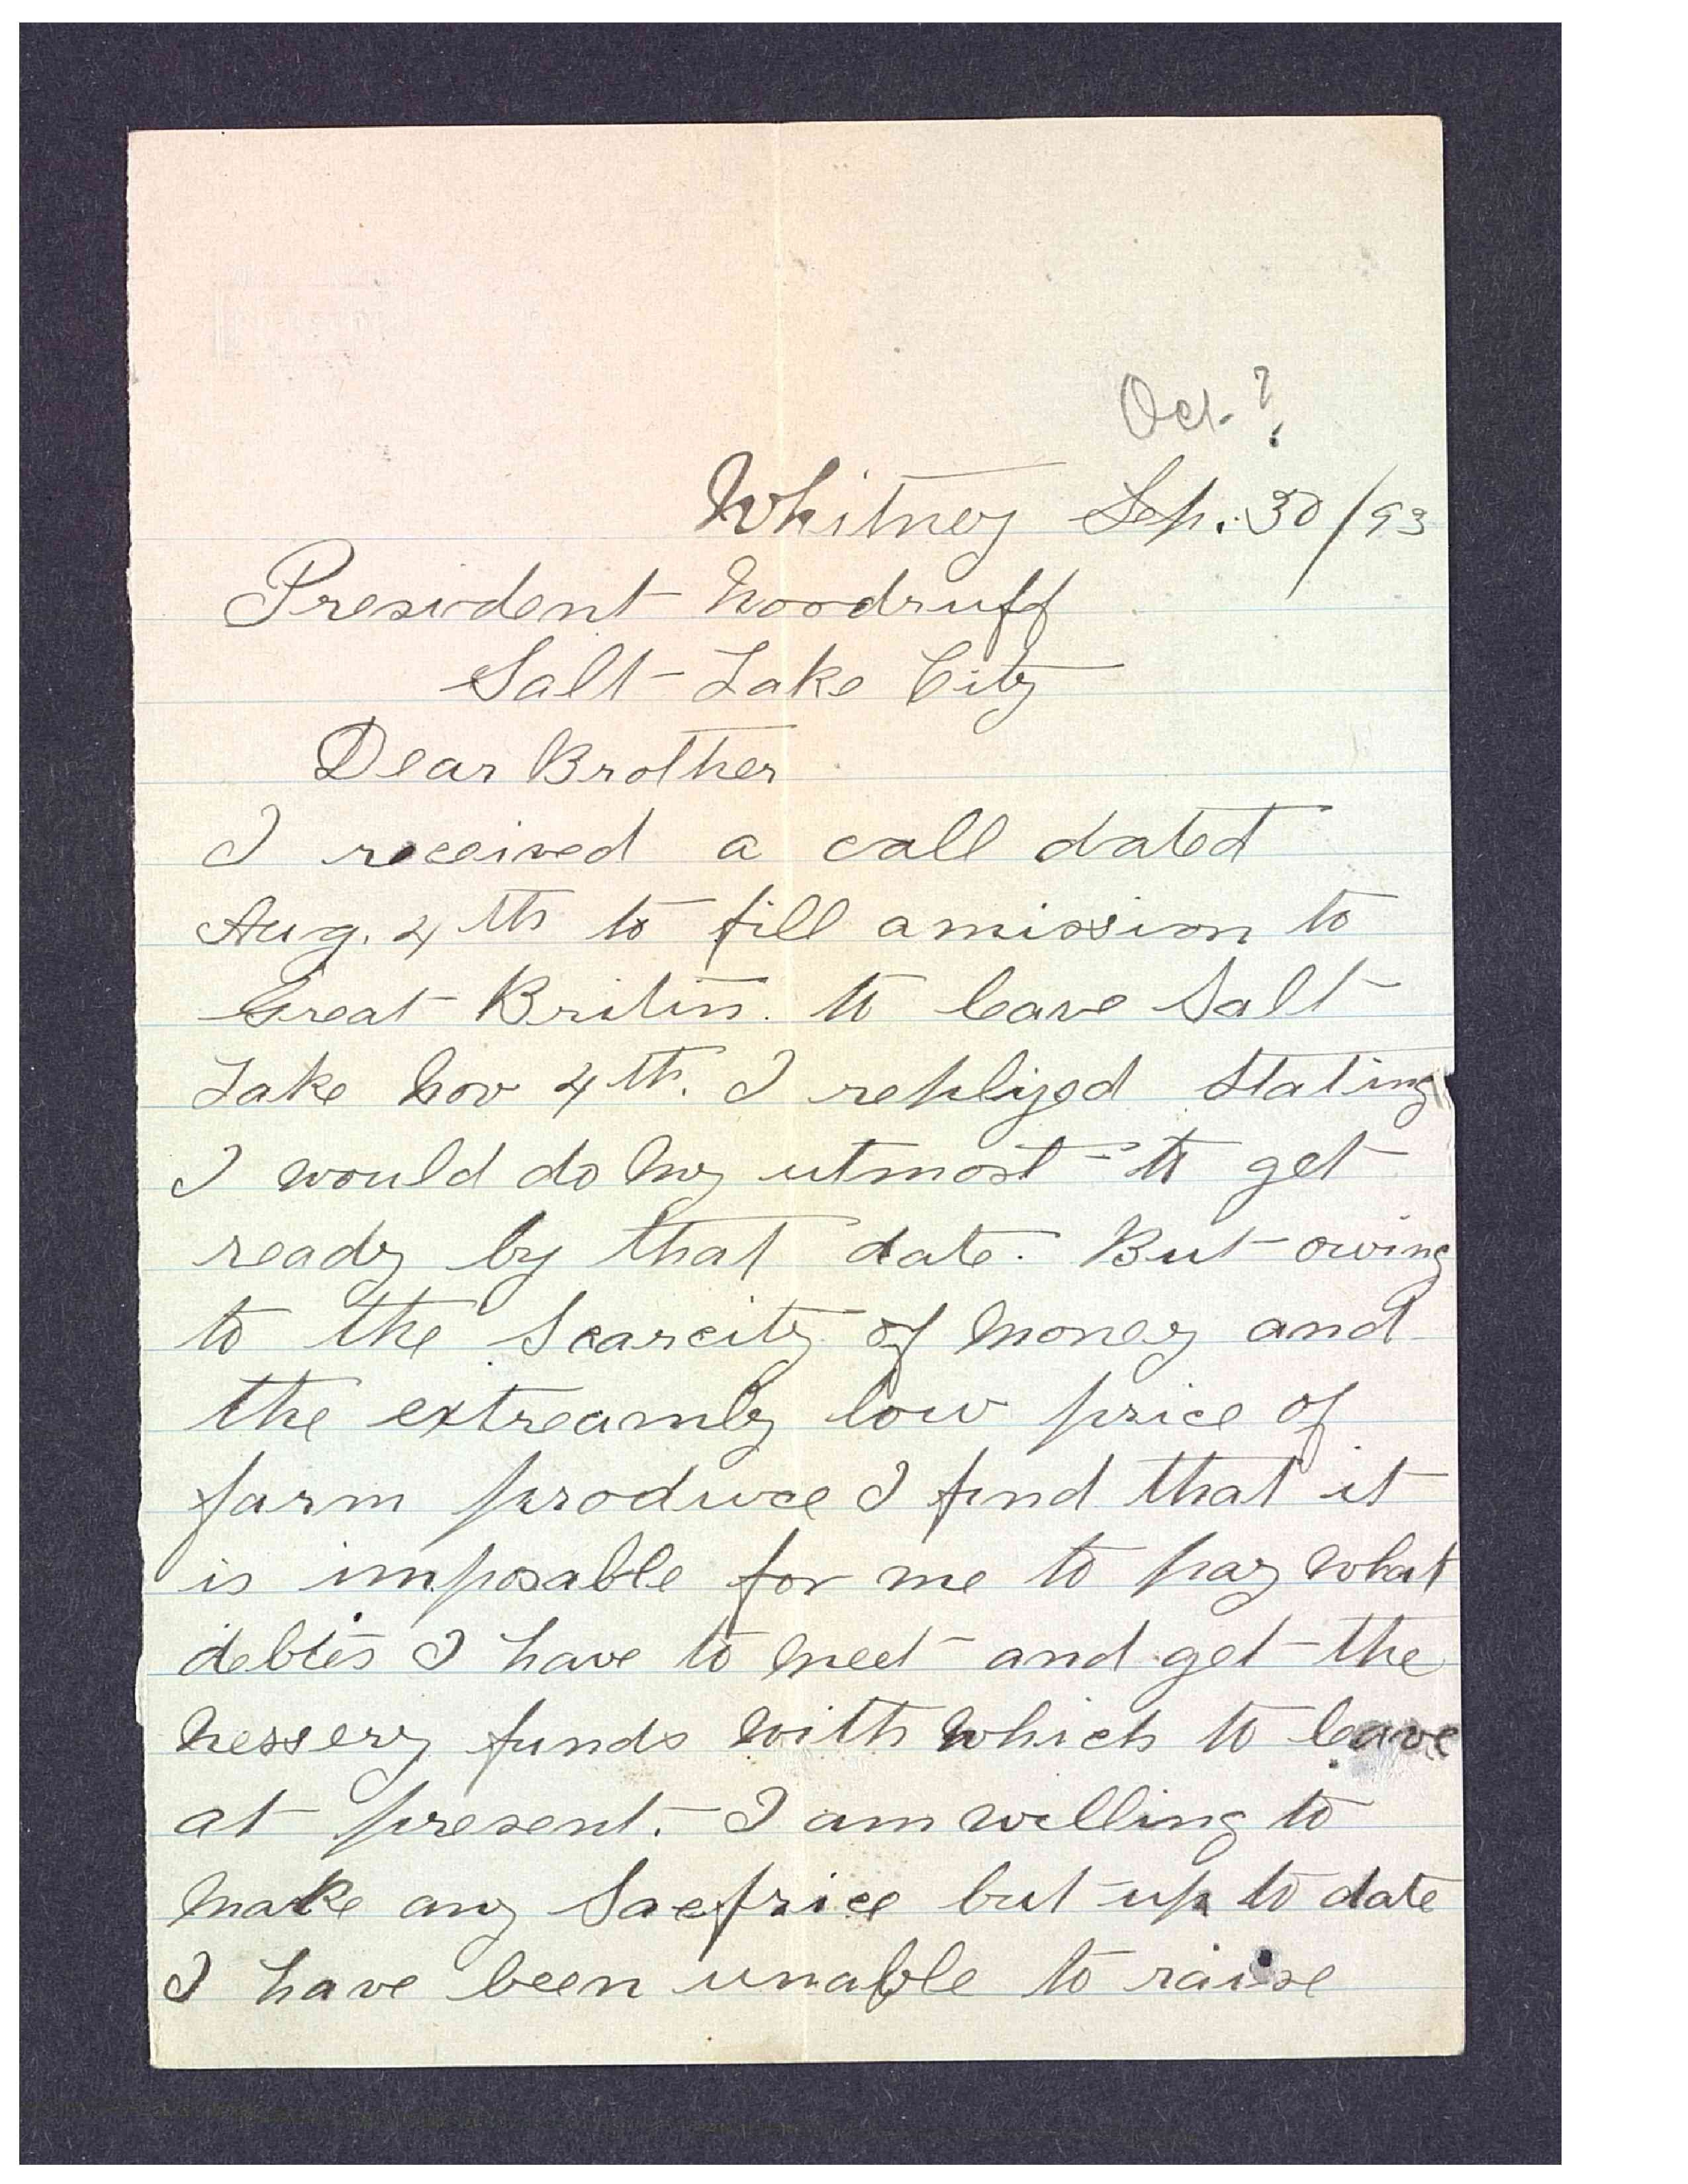 Oct. ?
Whitney Sep. 30/93
President Woodruff
Salt Lake City
Dear Brother
I received a call dated
Aug. 4th to fill a mission to
Great Britin. to leave Salt
Lake Nov 4th. I replyed stating
I would do my utmost to get
ready by that date. But owing
to the Scarcity of money and
the extreamly low price of
farm produce I find that it
is imposable for me to pay what
debtes I have to meet and get the
nessery funds with which to leave
at present. I am willing to
make any Sacfrice but up to date
I have been unable to raise